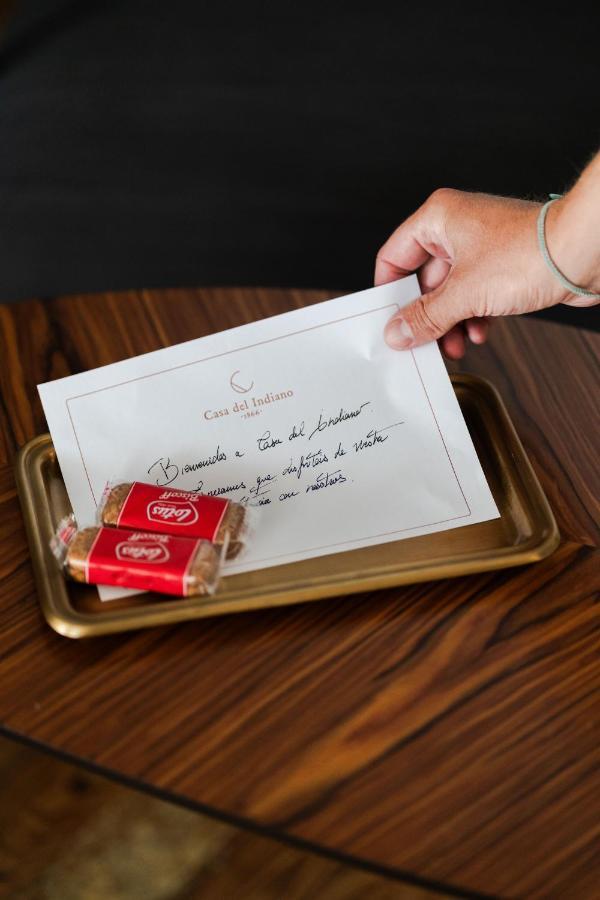 Casa del Indiano
·1966·
Bienvenidos a Casa del Indiano.
que disfrutéis de vuestra
con nosotros.
Biscoff
Lotus
Biscoff
Lotus